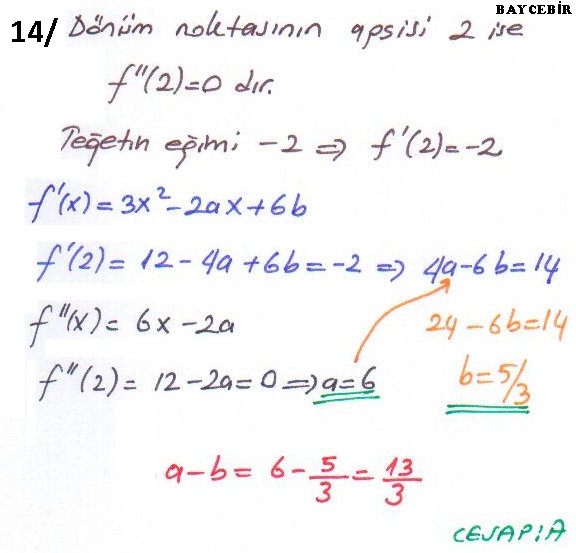 BAYCEBİR
14/ Dönüm noktasının apsisi 2 ise
f''(2)=0 dır.
Teğetin eğimi -2 ⇒ f'(2)=-2
f'(x)=3x²-2ax+6b
f'(2)= 12-4a+6b=-2 ⇒ 4a-6b=14
f''(x)= 6x-2a
24-6b=14
f''(2)= 12-2a=0 ⇒ a=6
b=5/3
a-b= 6-5/3=13/3
CEVAP:A